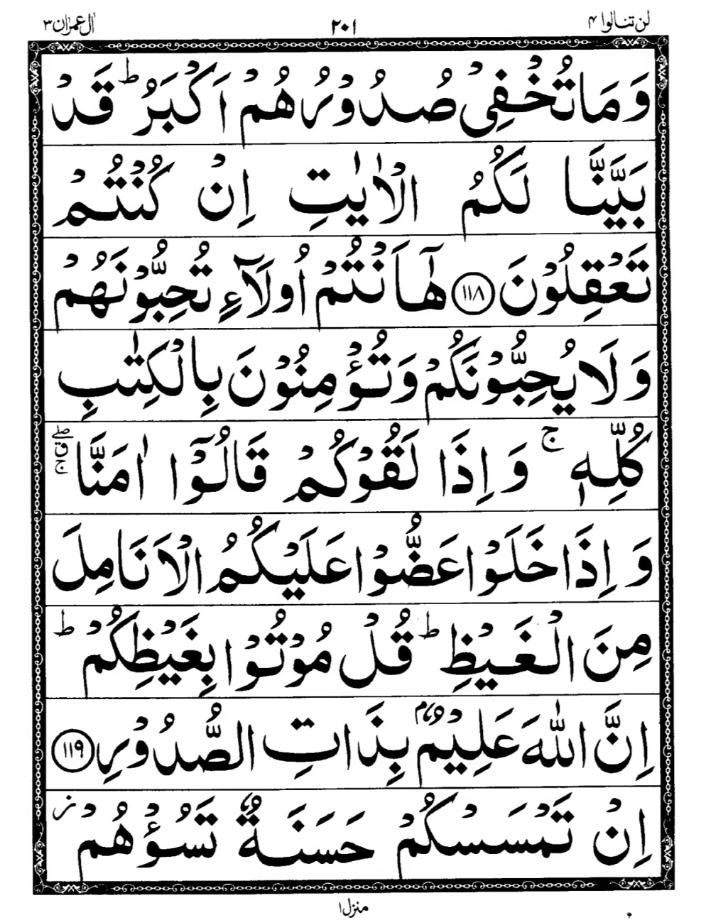 لن تنالوا ۴
۲۰۱
ال عمران ۳
وَمَا تُخْفِیْ صُدُوْرُهُمْ اَكْبَرُ ؕ قَدْ
بَیَّنَّا لَكُمُ الْاٰیٰتِ اِنْ كُنْتُمْ
تَعْقِلُوْنَ ۝۱۱۸ هٰۤاَنْتُمْ اُولَآءِ تُحِبُّوْنَهُمْ
وَلَا یُحِبُّوْنَكُمْ وَتُؤْمِنُوْنَ بِالْكِتٰبِ
كُلِّهٖ ۚ وَاِذَا لَقُوْكُمْ قَالُوْۤا اٰمَنَّا ۖۗۚ
وَاِذَا خَلَوْا عَضُّوْا عَلَیْكُمُ الْاَنَامِلَ
مِنَ الْغَیْظِ ؕ قُلْ مُوْتُوْا بِغَیْظِكُمْ ؕ
اِنَّ اللّٰهَ عَلِیْمٌۢ بِذَاتِ الصُّدُوْرِ ۝۱۱۹
اِنْ تَمْسَسْكُمْ حَسَنَةٌ تَسُؤْهُمْ ؗ
منزل ۱